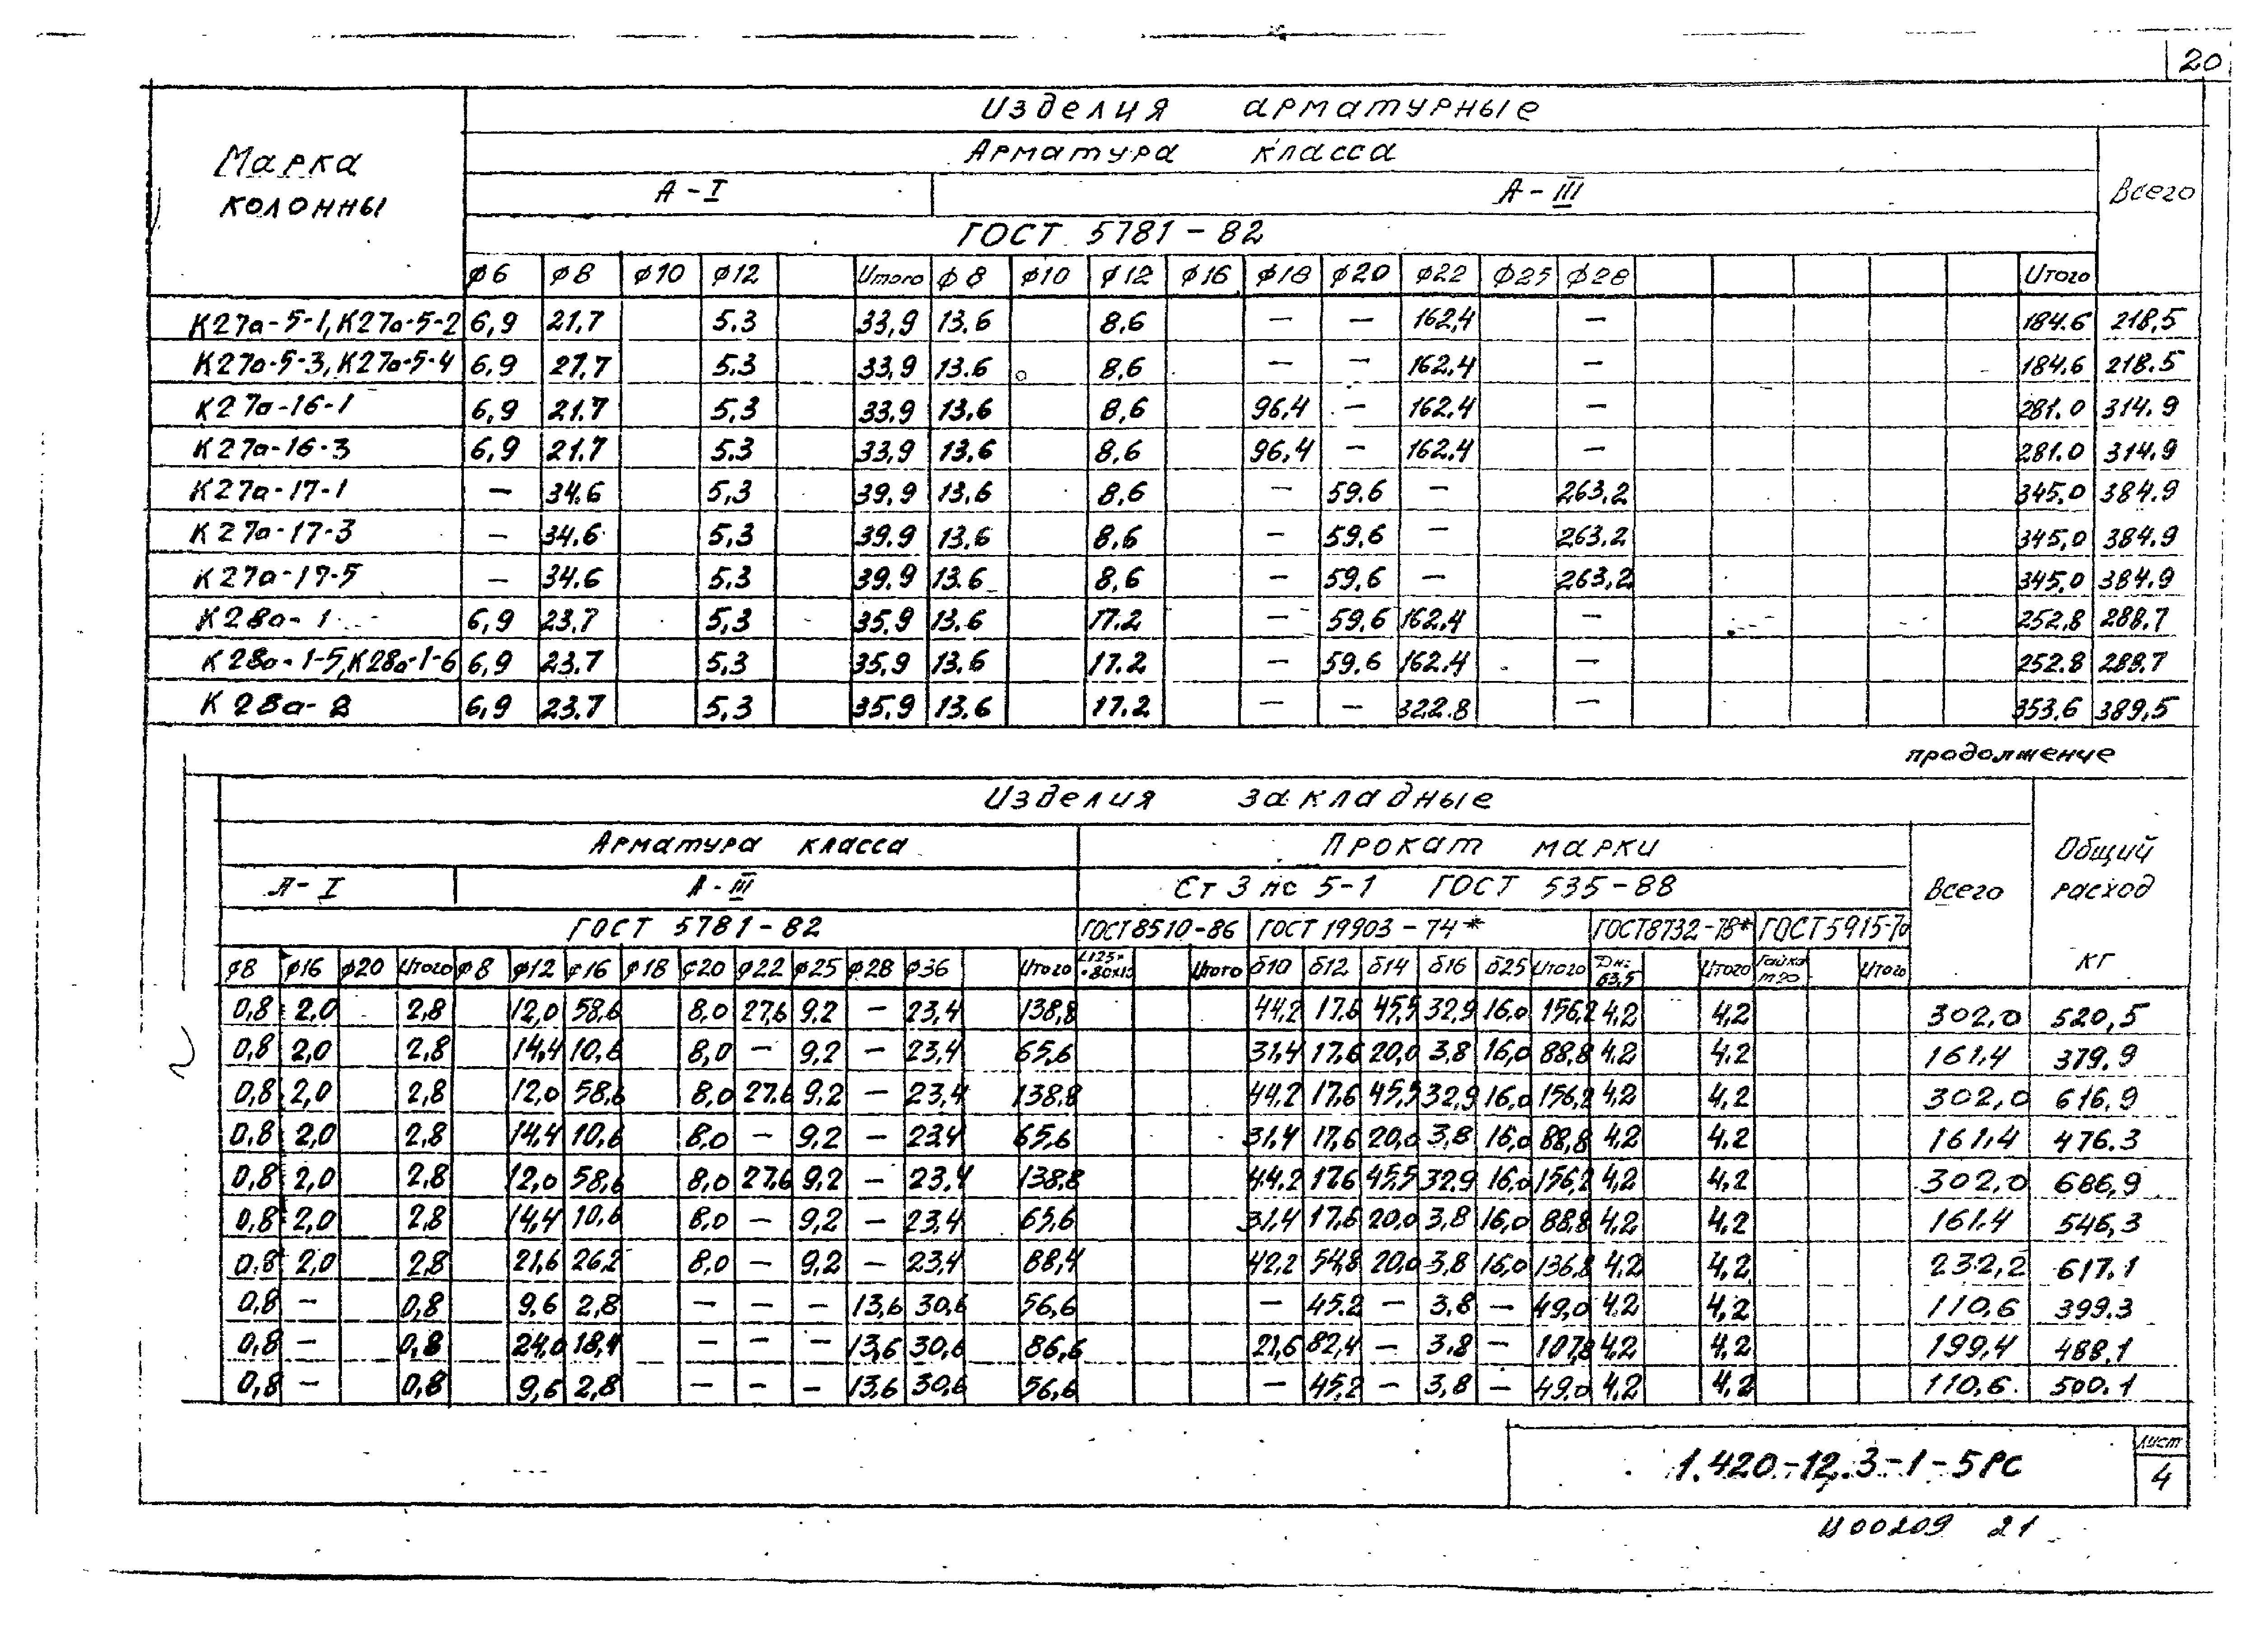 20
Изделия арматурные
Марка колонны
Арматура класса
Всего
А-I А-III
ГОСТ 5781-82
ф6 ф8 ф10 ф12 Итого ф8 ф10 ф12 ф16 ф18 ф20 ф22 ф25 ф28 Итого
К27а-5-1, К27а-5-2 6,9 21,7 5.3 33,9 13.6 8,6 — — 162,4 — 184.6 218,5
К27а-5-3, К27а-5-4 6,9 21,7 5.3 33,9 13.6 8,6 — — 162,4 — 184.6 218.5
К27а-16-1 6,9 21.7 5,3 33,9 13,6 8,6 96,4 — 162.4 — 281.0 314.9
К27а-16-3 6,9 21.7 5.3 33,9 13,6 8,6 96,4 — 162.4 — 281.0 314.9
К27а-17-1 — 34.6 5,3 39,9 13,6 8,6 — 59.6 — 263,2 345,0 384.9
К27а-17-3 — 34.6 5,3 39.9 13,6 8,6 — 59,6 — 263.2 345,0 384.9
К27а-17-5 — 34.6 5.3 39.9 13.6 8,6 — 59,6 — 263,2 345,0 384.9
К28а-1 6,9 23,7 5,3 35,9 13,6 17.2 — 59,6 162.4 — 252.8 288.7
К28а-1-5, К28а-1-6 6,9 23.7 5,3 35,9 13,6 17.2 — 59.6 162.4 — 252.8 288.7
К28а-2 6,9 23.7 5,3 35,9 13.6 17.2 — — 322.8 — 353.6 389,5
продолжение
Изделия закладные
Арматура класса Прокат марки
Общий расход кг
А-I А-III Ст 3 пс 5-1 ГОСТ 535-88 Всего
ГОСТ 5781-82 ГОСТ 8510-86 ГОСТ 19903-74* ГОСТ 8732-78* ГОСТ 5915-70
ф8 ф16 ф20 Итого ф8 ф12 ф16 ф18 ф20 ф22 ф25 ф28 ф36 Итого L125× ×80×10 Итого δ10 δ12 δ14 δ16 δ25 Итого Дн= 63,5 Итого Гайка М20 Итого
0,8 2,0 2,8 12,0 58,6 8,0 27,6 9,2 — 23,4 138,8 44,2 17,6 45,5 32,9 16,0 156,2 4,2 4,2 302,0 520,5
0,8 2,0 2,8 14,4 10,6 8,0 — 9,2 — 23,4 65,6 31,4 17,6 20,0 3,8 16,0 88,8 4.2 4.2 161,4 379,9
0,8 2,0 2,8 12,0 58,6 8,0 27.6 9,2 — 23,4 138,8 44,2 17,6 45,5 32,9 16,0 156,2 4,2 4,2 302,0 616,9
0,8 2,0 2,8 14,4 10,6 8,0 — 9,2 — 23,4 65,6 31,4 17,6 20,0 3,8 16,0 88,8 4,2 4.2 161,4 476.3
0,8 2,0 2,8 12,0 58,6 8,0 27,6 9,2 — 23,4 138,8 44,2 17,6 45,5 32,9 16,0 156,2 4,2 4,2 302,0 686,9
0,8 2,0 2,8 14,4 10,6 8,0 — 9,2 — 23,4 65,6 31,4 17,6 20,0 3,8 16,0 88,8 4,2 4,2 161.4 546,3
0,8 2,0 2,8 21,6 26,2 8,0 — 9,2 — 23,4 88,4 42,2 54,8 20,0 3,8 16,0 136,8 4,2 4,2 232,2 617,1
0,8 — 0,8 9.6 2,8 — — — 13,6 30,6 56,6 — 45.2 — 3,8 — 49,0 4.2 4,2 110,6 399.3
0,8 — 0,8 24,0 18,4 — — — 13,6 30,6 86,6 21,6 82,4 — 3.8 — 107,8 4,2 4,2 199,4 488.1
0,8 — 0,8 9,6 2,8 — — — 13,6 30,6 56,6 — 45,2 — 3,8 — 49,0 4,2 4,2 110,6 500.1
1.420-12.3-1-5РС
Лист
4
Ц00209 21